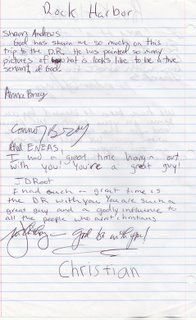 Rock Harbor
Shawn Andrews
God has shown me so much on this
trip to the D.R. He has painted so many
pictures of what it looks like to be a true
servant of God.
ENEAS
I had a good time hangin out
with you! you're a great guy!
JD Root
I had such a great time is
the DR with you You are such a
great guy and a godly influence to
all the people who aint christians
God be with you!
Christian